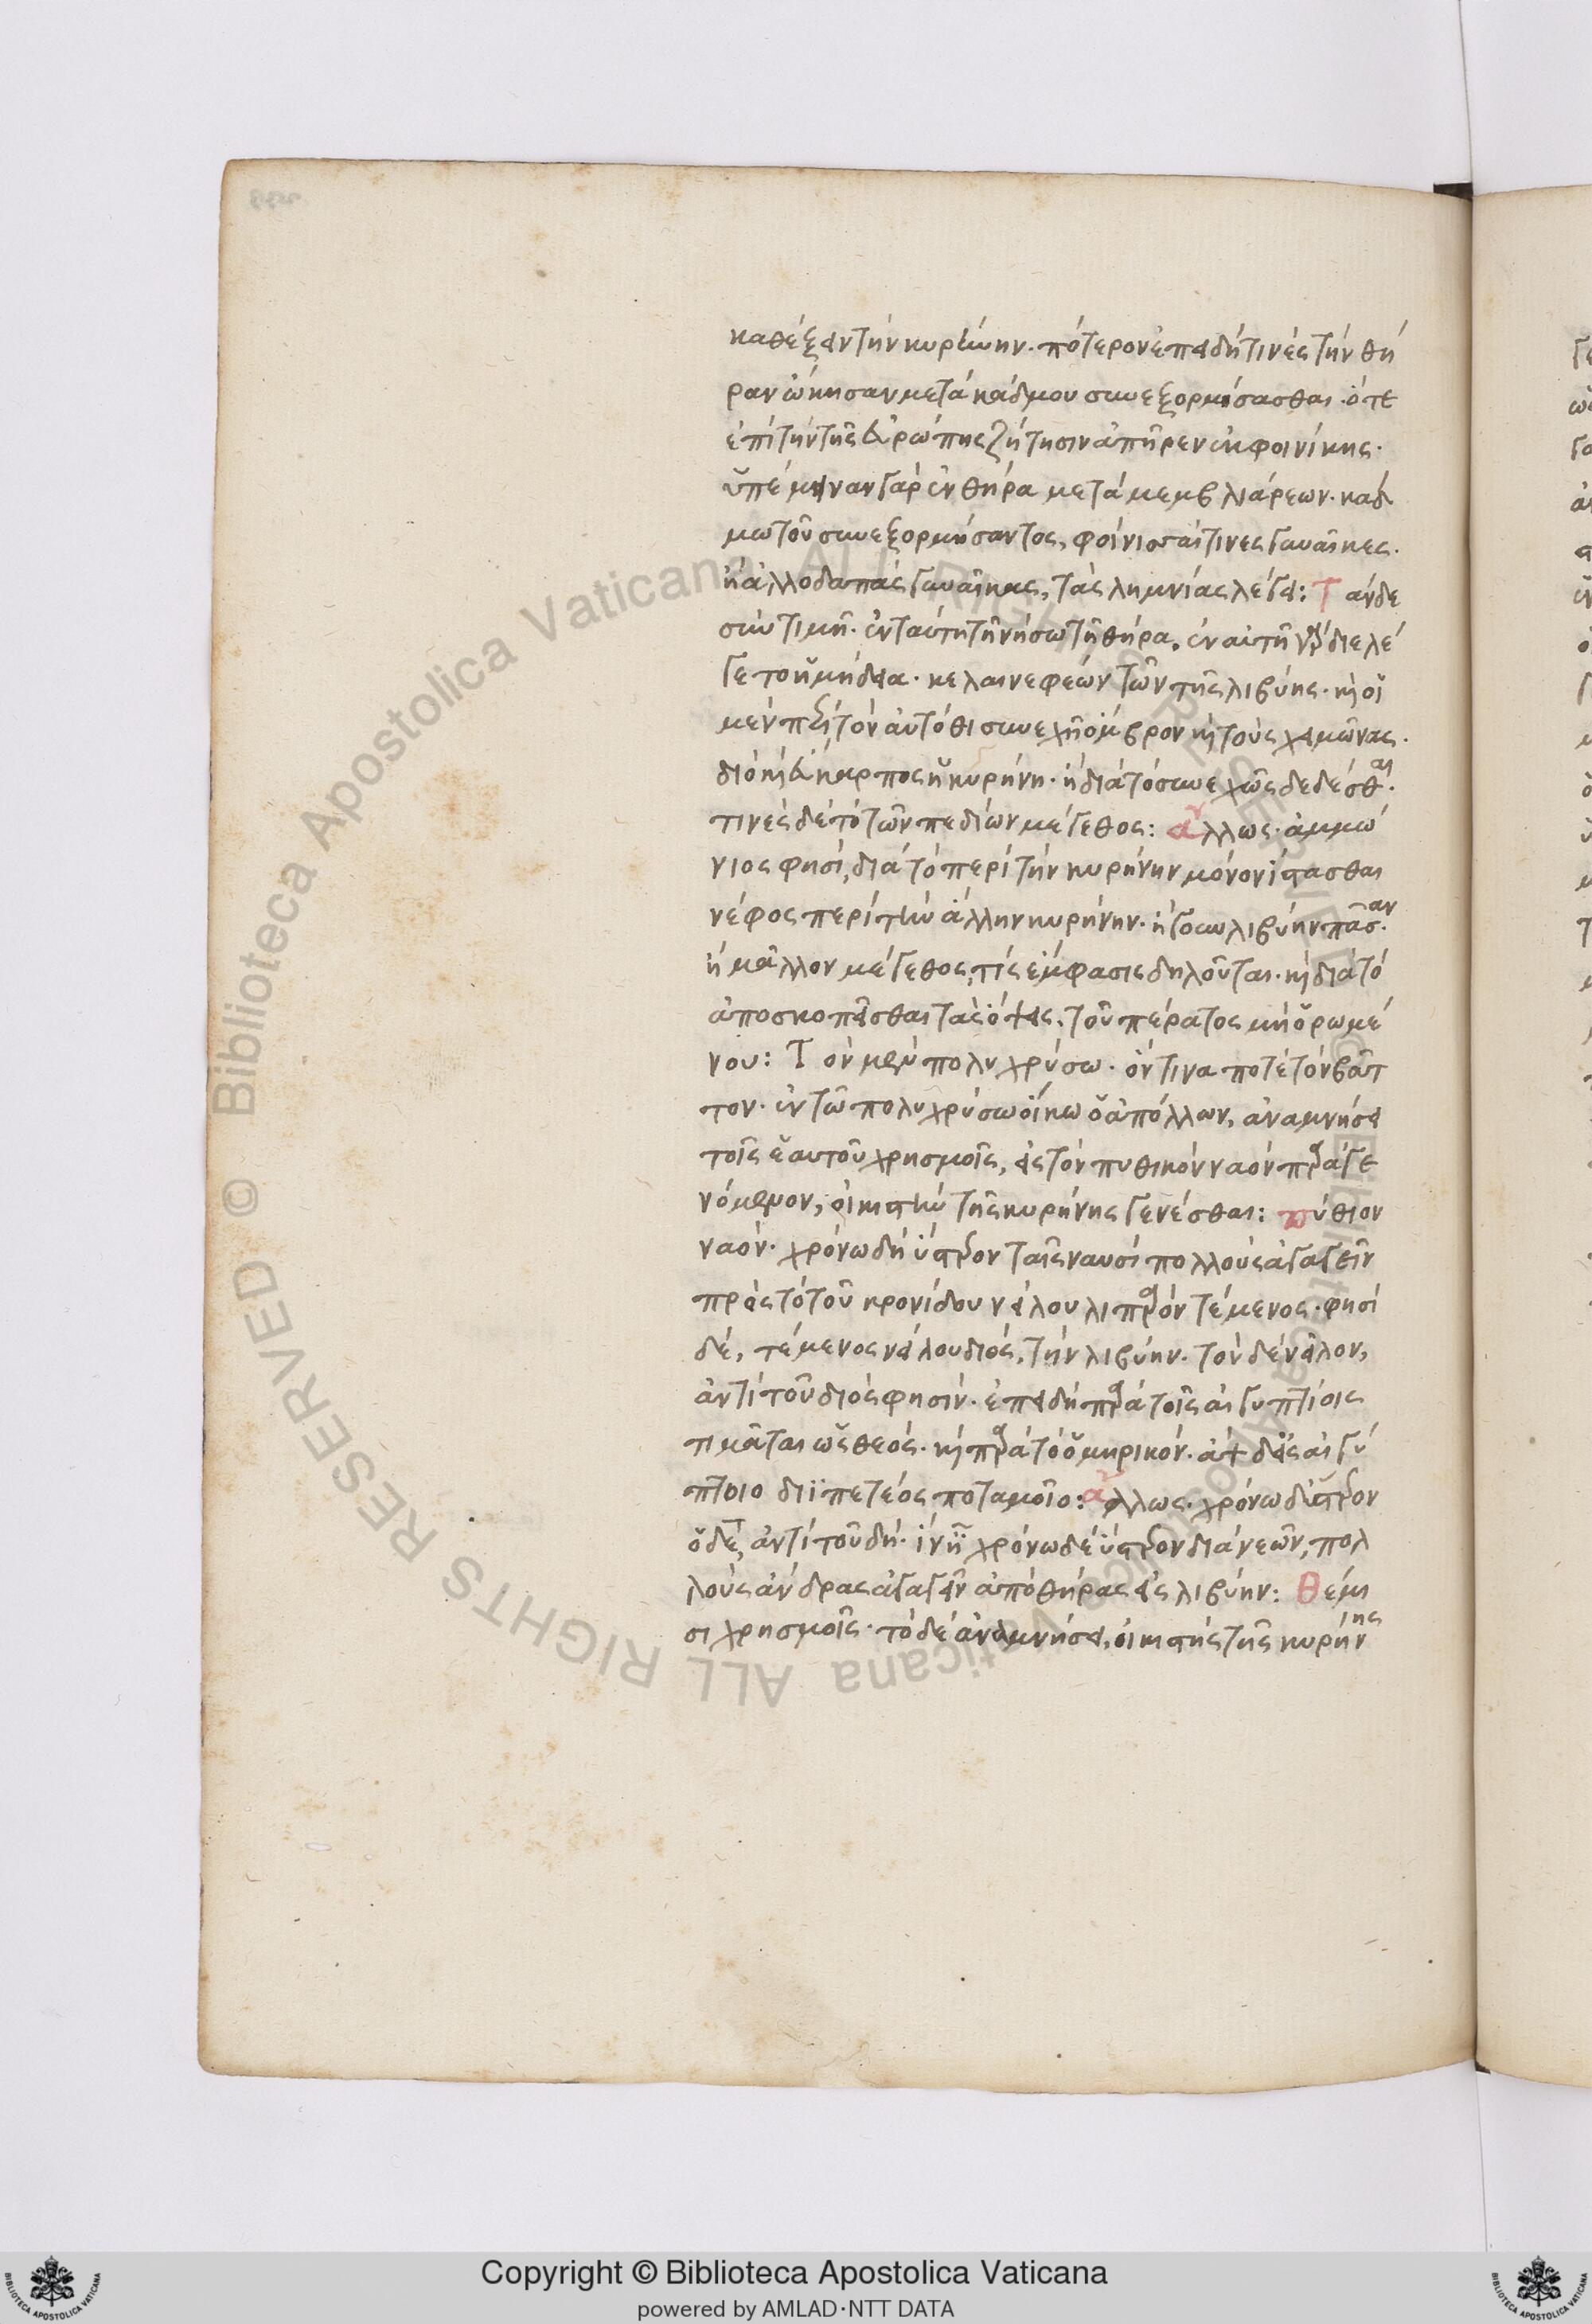 καθέξειν τὴν κυρήνην. πότερον ἐπειδή τινες τὴν θή
ραν ὤκησαν μετὰ κάδμου συνεξορμήσασθαι. ὅτε
ἐπὶ τὴν τῆς εὐρώπης ζήτησιν ἀπῆρεν ἐκ φοινίκης.
ὑπέμειναν γὰρ ἐν θήρα μετὰ μεμβλιάρεων. κάδ
μω τοῦ συνεξορμήσαντος, φοίνισσαί τινες γυναῖκες.
ἢ ἀλλοδαπὰς γυναῖκας, τὰς λημνίας λέγει: Τ άνδε
σὺν τιμῆ. ἐν ταύτη τῆ νήσω τῆ θήρα, ἐν αὐτῆ γὰρ διελέ
γετο ἡ μήδεια. κελαινεφέων τῶν τῆς λιβύης. καὶ οἱ
μὲν περὶ τὸν αὐτόθι συνεχῆ ὄμβρον καὶ τοὺς χειμῶνας.
διὸ καὶ εὔκαρπος ἡ κυρήνη. ἢ διὰ τὸ συνεχῶς δεδέσθαι.
τινὲς δὲ τὸ τῶν πεδίων μέγεθος: ἄλλως. ἀμμώ
νιος φησὶ, διὰ τὸ περὶ τὴν κυρήνην μόνον ἵστασθαι
νέφος περὶ τὴν ἄλλην κυρήνην. λιβύην πᾶσαν.
ἢ μᾶλλον μέγεθος, τίς ἔμφασις δηλοῦται. καὶ διὰ τὸ
ἀποσκοπεῖσθαι τὰς ὄψεις, τοῦ πέρατος μὴ ὁρωμέ
νου: Τ ὸν μὲν πολυχρύσω. ὅντινα ποτὲ τὸν βάτ
τον. ἐν τῶ πολυχρύσω οἴκω ὁ ἀπόλλων, ἀναμνήσει
τοῖς ἑαυτοῦ χρησμοῖς, εἰς τὸν πυθικὸν ναὸν παραγε
νόμενον, οἰκιστὴν τῆς κυρήνης γενέσθαι: πύθιον
ναόν. χρόνω δὴ ὕστερον ταῖς ναυσὶ πολλοὺς ἀγαγεῖν
πρὸς τὸ τοῦ κρονίδου νείλου λιπαρὸν τέμενος. φησὶ
δὲ, τέμενος νείλου διὸς, τὴν λιβύην. τὸν δὲ νεῖλον,
ἀντὶ τοῦ διός φησιν. ἐπειδὴ παρὰ τοῖς αἰγυπτίοις
τιμᾶται ὡς θεός. καὶ παρὰ τὸ ὁμηρικόν. ἂψ δ' εἰς αἰγύ
πτοιο διϊπετέος ποταμοῖο: ἄλλως. χρόνω δ' ὕστερον
ὁ δὲ, ἀντὶ τοῦ δή. ἵν' ἦ χρόνω δὲ ὕστερον διὰ νεῶν, πολ
λοὺς ἄνδρας ἀγαγεῖν ἀπὸ θήρας εἰς λιβύην: Θέμι
σι χρησμοῖς. τὸ δὲ ἀναμνήσει, οἰκιστὴς τῆς κυρήνης
Copyright © Biblioteca Apostolica Vaticana
powered by AMLAD·NTT DATA